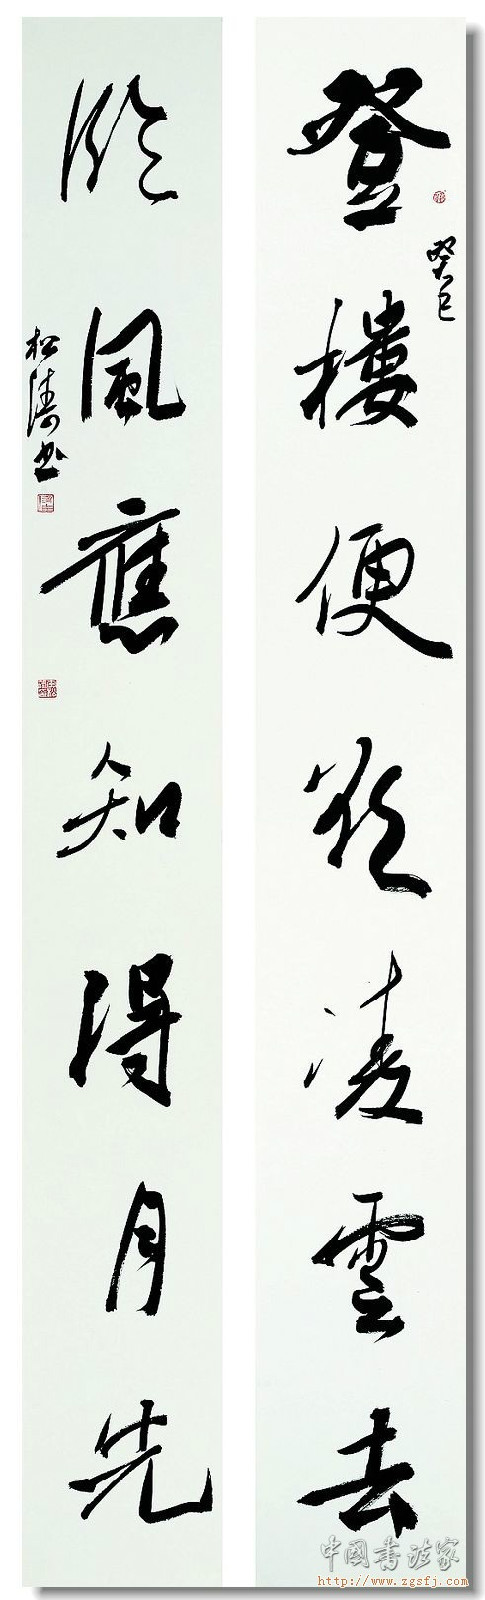 登樓便欲凌雲去
癸巳
臨風應知得月先
松濤書
中國書法家
http://www.zgsfj.com